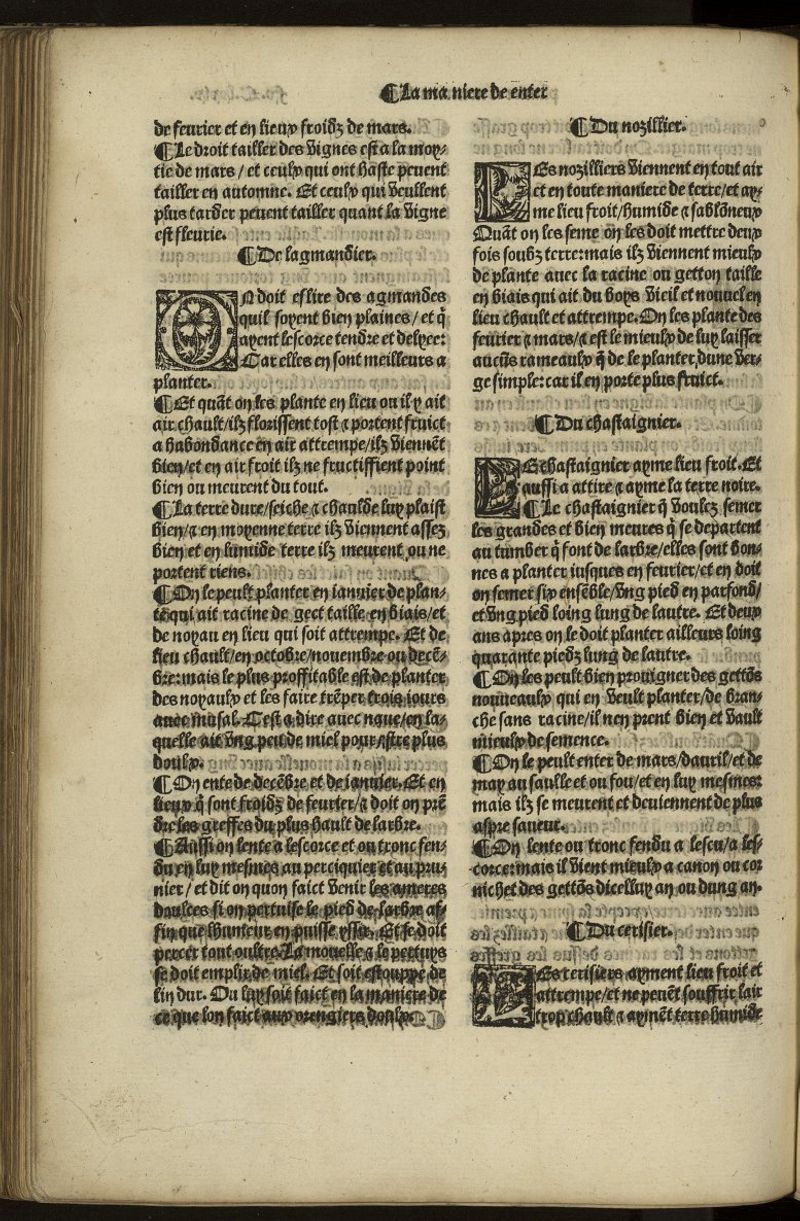 ¶La ma niere de enter
de feurier et en lieux froidz de mars.
¶Le droit tailler des vignes est a la moy-
tie de mars / et ceulx qui ont haste peuent
tailler en automne. Et ceulx qui veullent
plus tarder peuent tailler quant la vigne
est fleurie.
¶De lagmandier.
ON doit eslire des agmandes
quil soyent bien plaines / et q̃
ayent lescorce tendre et delyee:
Car elles en sont meilleurs a
planter.
¶Et quãt on les plante en lieu ou il y ait
air chault/ilz florissent tost ⁊ portent fruict
a habondance en air attrempe/ilz viennẽt
bien/et en air froit ilz ne fructiffient point
bien ou meurent du tout.
¶La terre dure/seiche ⁊ chaulde luy plaist
bien/⁊ en moyenne terre ilz viennent assez
bien et en humide terre ilz meurent ou ne
portent riens.
¶On le peult planter en ianuier de plan-
te qui ait racine de gect taille en biais/et
de noyau en lieu qui soit attrempe. Et de
lieu chault/en octobre/nouembre ou decẽ-
bre: mais le plus proffitable est de planter
des noyaulx et les faire trẽper trois iours
auec musal. Cest a dire auec eaue/en la-
quelle ait vng peu de miel pour estre plus
doulx.
¶On ente de decẽbre et de ianuier. Et en
lieux q̃ sont froidz de feurier/⁊ doit on prẽ
dre les greffes du plus hault de larbre.
¶Aussi on lente a lescorce et ou tronc fen-
du en luy mesmes au perciquier et au pru-
nier / et dit on quon faict venir les ameres
doulces si on pertuise le pied de larbre af-
fin que lhumeur en puisse yssir. Et se doit
percer tout oultre la mouelle ⁊ le pertuys
se doit emplir de miel. Et soit estouppe de
lin dur. Ou luy soit faict en la maniere de
ce que lon faict aux orengiers doulx
¶Du nozillier.
LEs nozilliers viennent en tout air
et en toute maniere de terre/et ay-
me lieu froit/humide ⁊ sablõneux
Quãt on les seme on les doit mettre deux
fois soubz terre: mais ilz viennent mieulx
de plante auec la racine ou getton taille
en biais qui ait du boys vieil et nouuel en
lieu chault et attrempe. On les plante des
feurier ⁊ mars/⁊ est le mieulx de luy laisser
aucũs rameaulx q̃ de le planter, dune ver-
ge simple: car il en porte plus fruict.
¶Du chastaignier.
LE chastaignier ayme lieu froit. Et
aussi a attire ⁊ ayme la terre noire.
¶Le chastaignier q̃ voulez semer
les grandes et bien meures q̃ se departent
au tumber q̃ font de larbre/elles sont bon-
nes a planter iusques en feurier/et en doit
on semer six ensẽble/vng pied en parfond/
et vng pied loing lung de lautre. Et deux
ans apres on le doit planter ailleurs loing
quarante piedz lung de lautre.
¶On les peult bien prouigner des gettõs
nouueaulx qui en veult planter/de bran-
che sans racine/il nen prent bien et vault
mieulx de semence.
¶On le peult enter de mars/dauril/et de
may au saulle et ou fou/et en luy mesmes:
mais ilz se meurent et deuiennent de plus
aspre saueur.
¶On lente ou tronc fendu a lescu/a les-
corce: mais il vient mieulx a canon ou cor
nichet des gettõs dicelluy an ou dung an.
¶Du cerisier.
LEs cerisiers ayment lieu froit et
attrempe/et ne peuẽt souffrir lair
trop chault ⁊ aymẽt terre humide